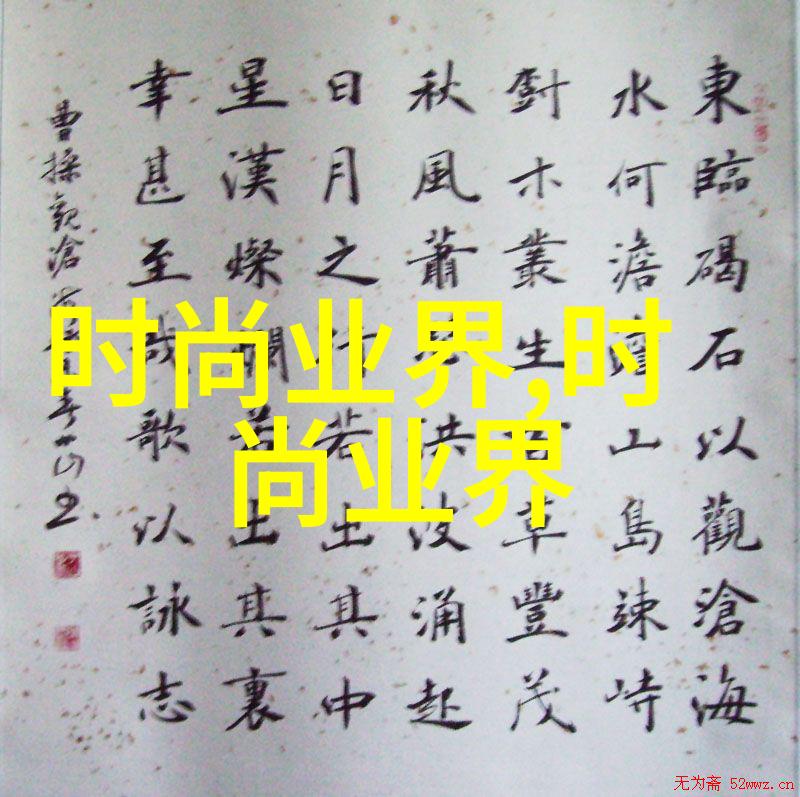 東臨碣石以觀滄海
水何澹澹山島竦峙
木叢生百草豐茂
秋風蕭洪波涌起
日月之行若出其中
星漢燦爛若出其裏
幸甚至哉歌以詠志
曹操觀滄
时尚业界,时
尚业界
无为斋 52wwz.cn